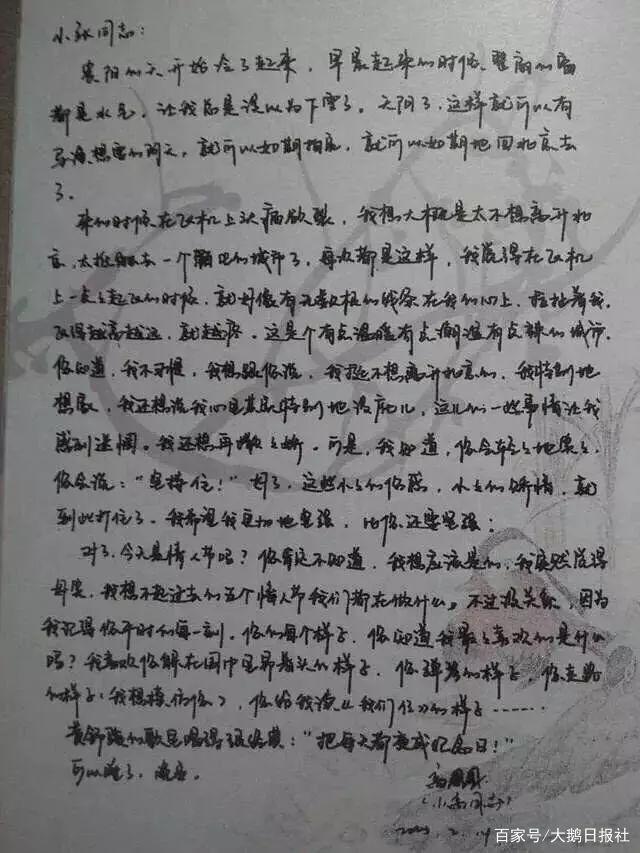 小张同志：
襄阳的天开始冷了起来，早晨起来的时候，屋前的窗
都是水气，让我总是误以为下雪了。天阴了，这样就可以有
导演想要的阴天，就可以如期拍完，就可以如期地回北京去
了。
来的时候在飞机上头痛欲裂，我想大概是太不想离开北
京，太抵触去一个陌生的城市了，每次都是这样，我觉得在飞机
上一点点起飞的时候，就好像有无数根的线系在我的心上，拉扯着我，
飞得越高越远，就越疼。这是个有点温暖有点潮湿有点辣的城市，
你知道，我不习惯，我想跟你说，我挺不想离开北京的，我特别地
想家，我还想说我心里其实特别地没底儿，这儿的一些事情让我
感到迷惘。我还想再撒撒娇。可是，我知道，你会轻轻地笑笑，
你会说：“坚持住！”好了，这些小小的伤感，小小的矫情，就
到此打住了。我希望我更加地坚强，比你还要坚强；
对了，今天是情人节吗？你肯定不知道，我想应该是的，我突然觉得
，我想不起过去的五个情人节我们都在做什么。不过没关系，因为
我记得你平时的每一刻，你的每个样子，你知道我最最喜欢的是什么
吗？我喜欢你躲在围巾里的样子，你弹琴的样子，你走路
的样子（我想模仿你），你给我读《我们仨》的样子……
黄舒骏的歌里唱得很：“把每天都变成纪念日！”
可以睡了，晚安。
（小同志）
2.14
百家号/大鹅日报社